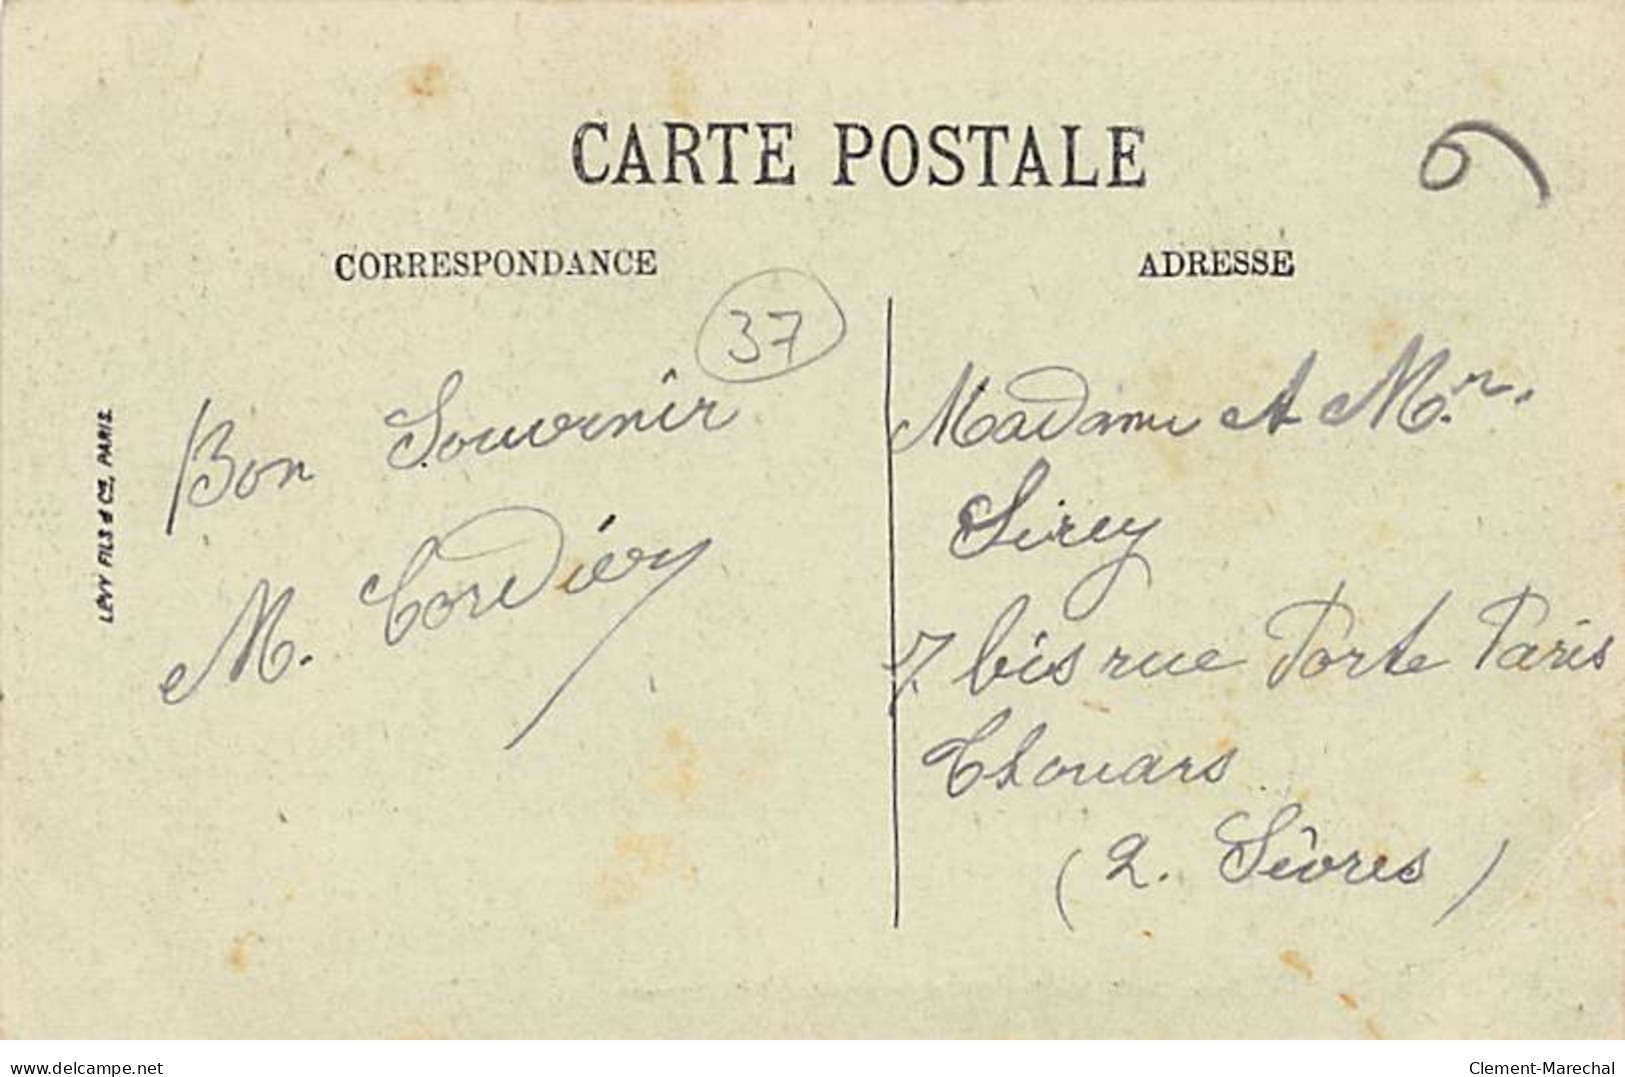 CARTE POSTALE
6
CORRESPONDANCE
ADRESSE
37
Bon Souvenir
M. Cordier
LÉVY FILS & Cie, PARIS.
Madame & Mr.
Sirey
7 bis rue Porte Paris
Thouars
(2. Sèvres)
delcampe.net
Clement-Marechal